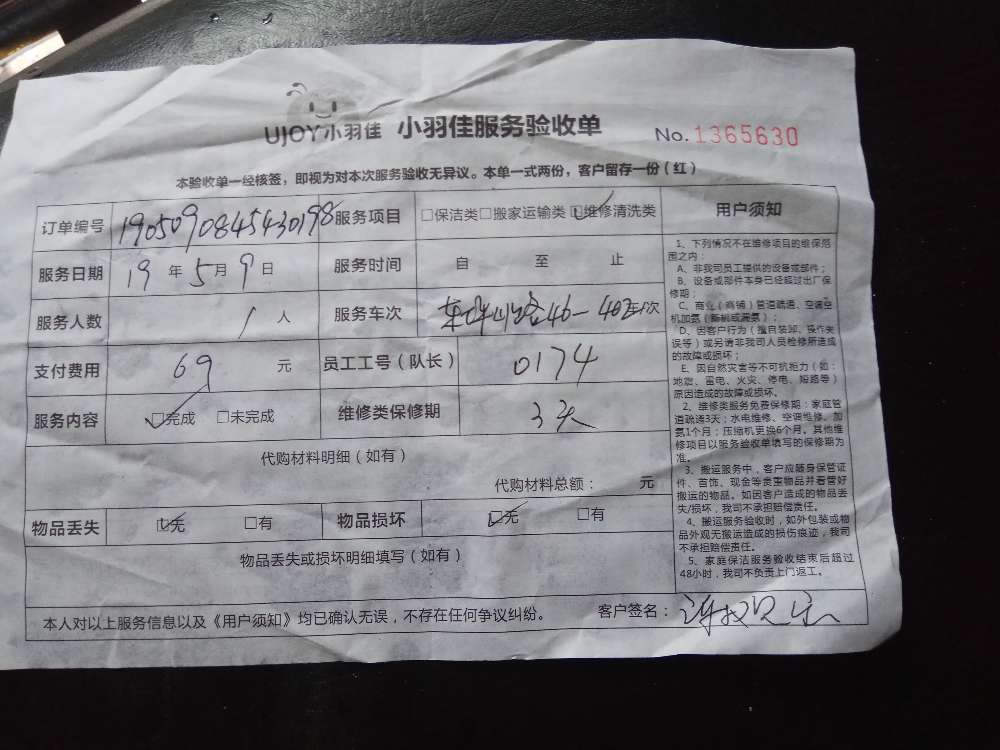 UJOY小羽佳 小羽佳服务验收单 No.1365630
本验收单一经核签，即视为对本次服务验收无异议。本单一式两份，客户留存一份（红）
订单编号 1905090845430198 服务项目 □保洁类□搬家运输类☑维修清洗类
服务日期 19年5月9日 服务时间 自 至 止
服务人数 1人 服务车次 46-40 车次
支付费用 69 元 员工工号（队长） 0174
服务内容 ☑完成 □未完成 维修类保修期 3天
代购材料明细（如有）
代购材料总额： 元
物品丢失 ☑无 □有 物品损坏 ☑无 □有
物品丢失或损坏明细填写（如有）
本人对以上服务信息以及《用户须知》均已确认无误，不存在任何争议纠纷。 客户签名：
用户须知
1、下列情况不在维修项目的维保范
围之内：
A、非我司员工提供的设备或部件；
B、设备或部件本身已经超过出厂保
修期；
C、商业（商铺）管道疏通、空调空
机加氨（新机或漏氨）；
D、因客户行为（擅自装卸、操作失
误等）或另请非我司人员检修所造成
的故障或损坏；
E、因自然灾害等不可抗拒力（如：
地震、雷电、火灾、停电、短路等）
原因造成的故障或损坏。
2、维修类服务免费保修期：家庭管
道疏通3天；水电维修、空调维修、加
氨1个月；压缩机更换6个月。其他维
修项目以服务验收单填写的保修期为
准。
3、搬运服务中，客户应随身保管证
件、首饰、现金等贵重物品并看管好
搬运的物品。如因客户造成的物品丢
失/损坏，我司不承担赔偿责任。
4、搬运服务验收时，如外包装或物
品外观无搬运造成的损伤痕迹，我司
不承担赔偿责任。
5、家庭保洁服务验收结束后超过
48小时，我司不负责上门返工。